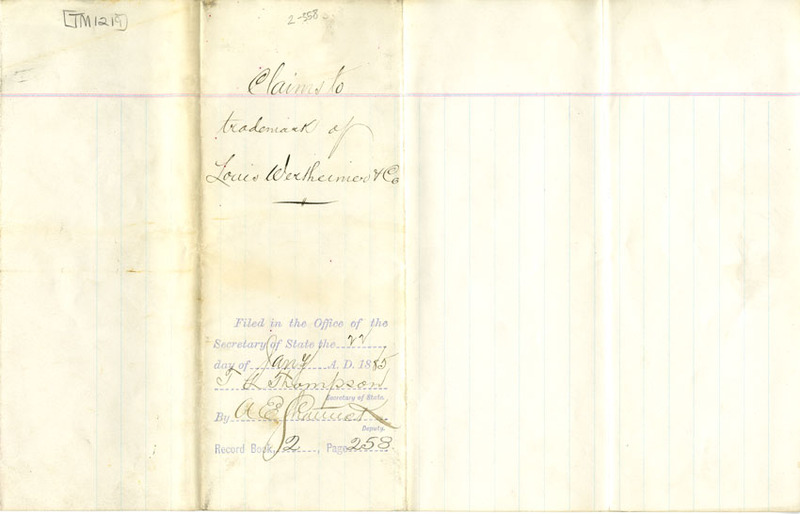 [TM1219]
2-558
Claims to
trademark of
Louis Wertheimer & Co
Filed in the Office of the
Secretary of State the 22
day of Jany A. D. 1885
T L Thompson
Secretary of State.
By A E Shattuck
Deputy.
Record Book 2, Page 258